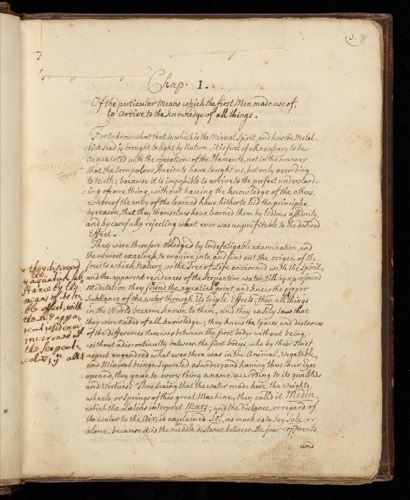 5. 8
Chap. I.
Of the particular Means which the first Men made use of,
to arrive to the knowledge of all things.
For to know what that is, which is the Mineral Spirit, and how the Metal-
lick seed is brought to light by Nature, it is first of all necessary to be
acquainted with the operations of the Elements, not in the manner
that the scrupulous Ancients have taught us, but only according
to truth; because it is impossible to arrive to the perfect understand-
ing of one thing, without having the knowledge of the others,
whereof the entry of the learned have hitherto hid the principle
by reason, that they themselves have learned them by tedious assiduity,
and by carefully rejecting what ever was unprofitable to the desired
Effect.
They were therefore obliged by indefatigable examination, and
the utmost exactness, to enquire into and find out the origin of the
fruit which Nature, or the Tree of Life environed with the Spirit,
and the apparent residences of the Serpentine water, till by a profound
Meditation, they found the point and knew the proper
Substance of the water through its triple Effects; then all things
in the World became known to them, and they easily saw that
they were Males of all knowledge; they knew the spaces and distances
of the differences they was between the first bodys without being
without a discontinuity between the first bodys, who by their first
aspect engendred what ever there was in the Animal, Vegetable,
and Mineral beings, Separated as under, and having thus their Eyes
opened, they gave to every thing a name according to its qualities
and Virtues. Thus seeing that the water made here the weights,
wheels, or springs of this great Machine, they called it Medin
which the Latins interpret Mars; and the Distance, or regard of
the water to the Air, is explained Sol, as much as to say Sole, or
alone, because it is the middle distance between the four
and
they
by
means of its
ble effect, with
the